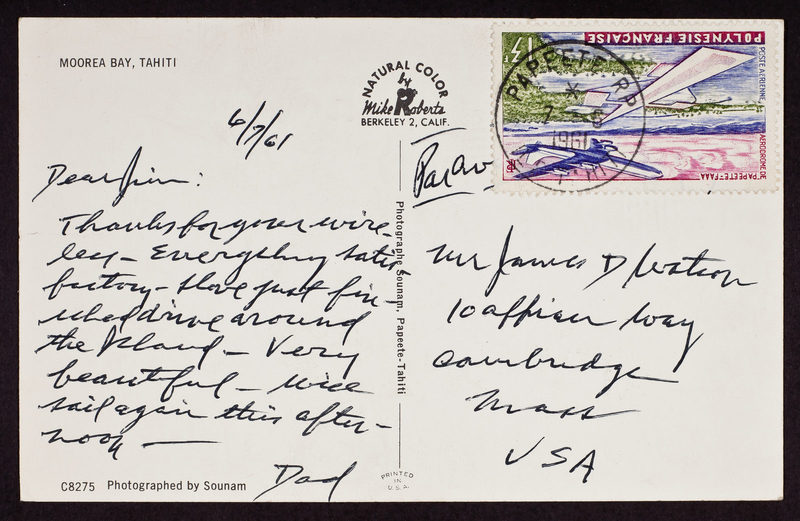 MOOREA BAY, TAHITI
NATURAL COLOR
by
Mike Roberts
BERKELEY 2, CALIF.
6/7/61
Dear Jim:
Thanks for your wire-
less - Everything satis
factory - Have just fin-
ished drive around
the Island - Very
beautiful - Will
sail again this after-
noon -
Dad
C8275 Photographed by Sounam
Photographe Sounam, Papeete-Tahiti
PRINTED
IN
U.S.A.
Par Av
POLYNESIE FRANÇAISE
13F
POSTE AÉRIENNE
AÉRODROME DE
PAPEETE-FAAA
RF
PAPEETE R.P.
1961
Mr James D Watson
10 Appian Way
Cambridge
Mass
USA